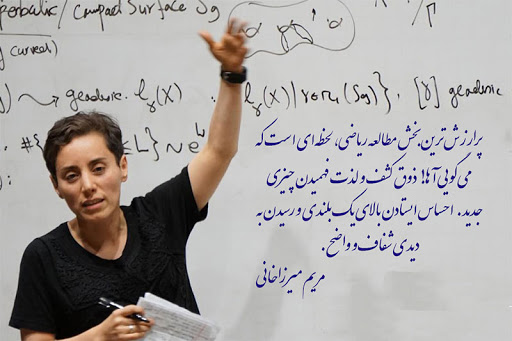 hyperbolic / compact surface Sg
g curves)
→ geodesic. ℓγ(X) : {ℓγ(X) | γ ∈ π₁(Sg)}, [γ] geodesic
#{ ≤ L} ~ e
پرارزش‌ترین بخش مطالعه ریاضی، لحظه‌ای است که
می‌گویی آها! ذوق کشف و لذت فهمیدن چیزی
جدید. احساس ایستادن بالای یک بلندی و رسیدن به
دیدی شفاف و واضح.
مریم میرزاخانی